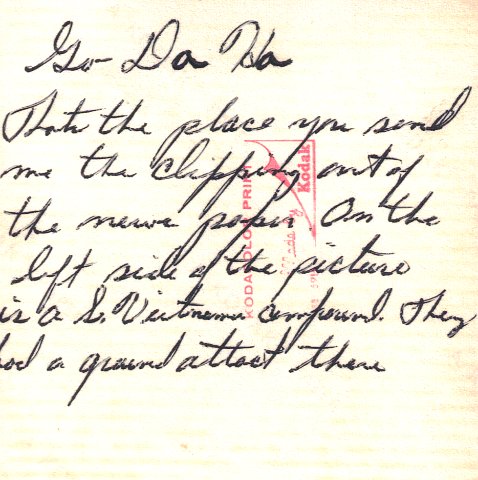 Go Da Ha
Thats the place you send
me the clipping out of
the newe paper. On the
left side of the picture
is a S. Vietnam compound. They
had a ground attact there
KODACOLOR PRINT
Kodak